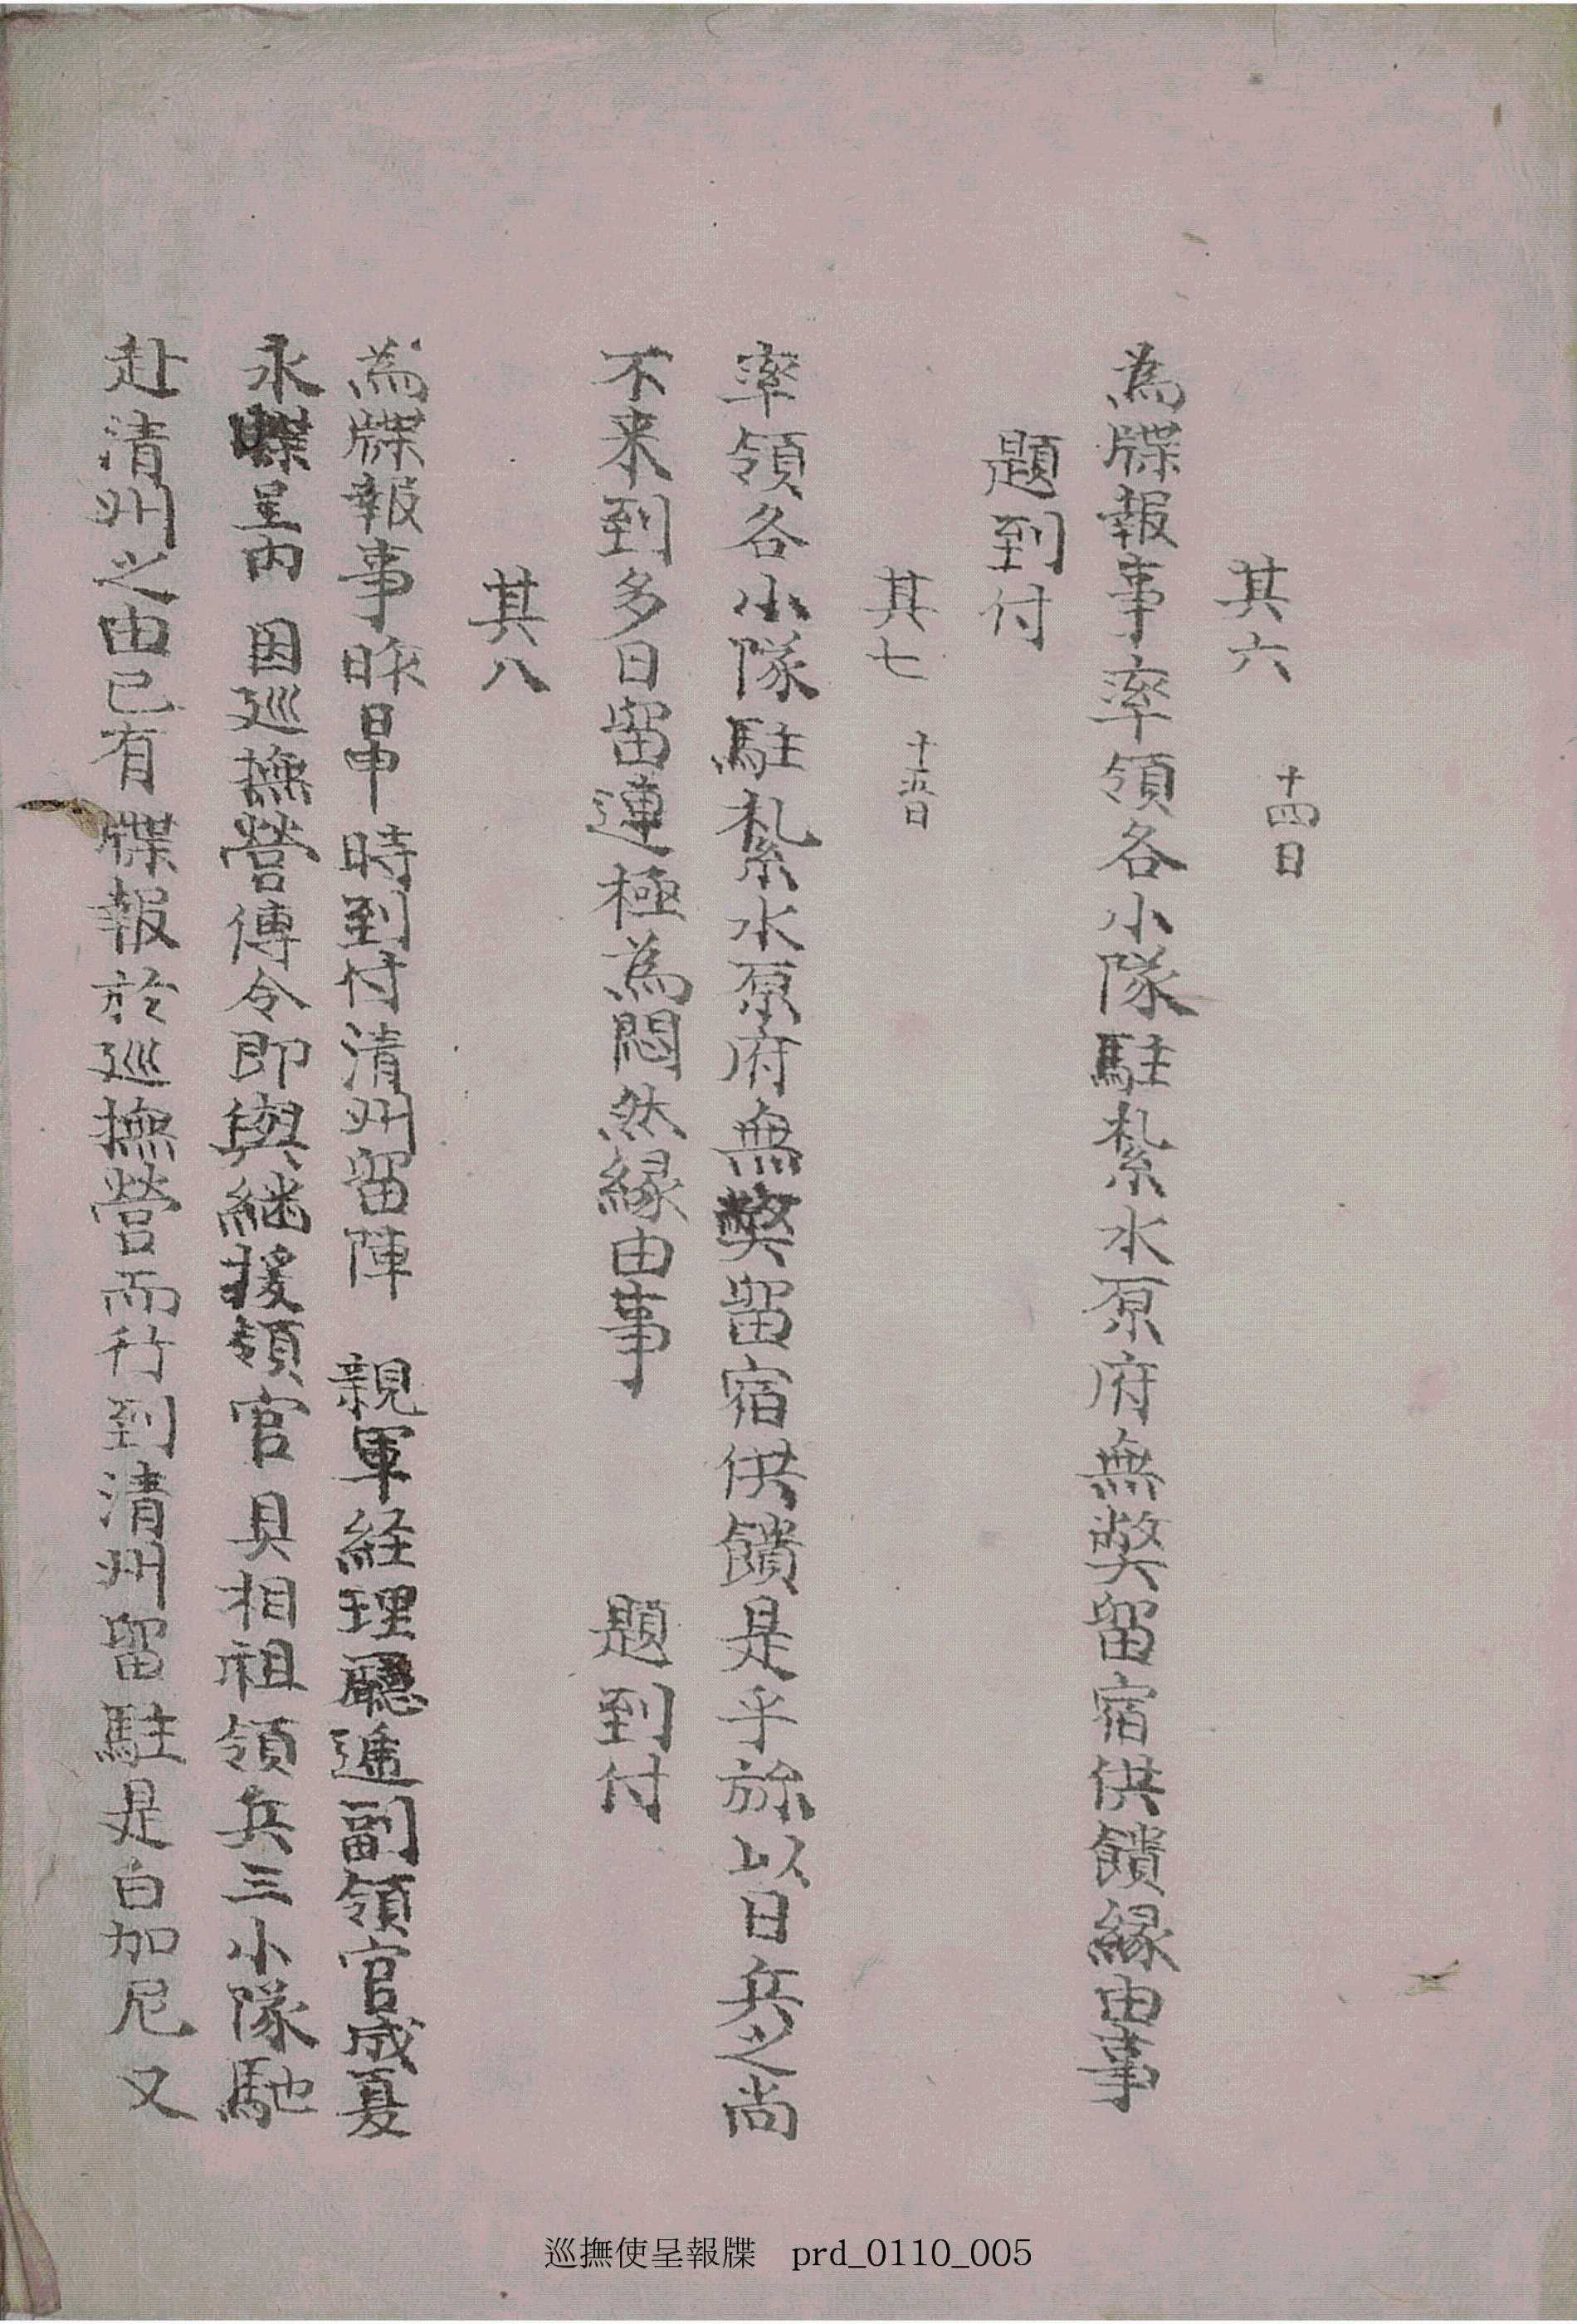 其六 十四日
為牒報事率領各小隊駐紮水原府無弊留宿供饋緣由事
題到付
其七 十五日
率領各小隊駐紮水原府無弊留宿供饋是乎旀以日兵之尚
不来到多日留連極為悶然緣由事 題到付
其八
為牒報事昨日申時到付清州留陣 親軍経理廳逓副領官成夏
永牒呈內 因巡撫營傳令即與継援領官 具相祖領兵三小隊馳
赴清州之由已有牒報於巡撫營而行到清州留駐是白加尼又
巡撫使呈報牒 prd_0110_005